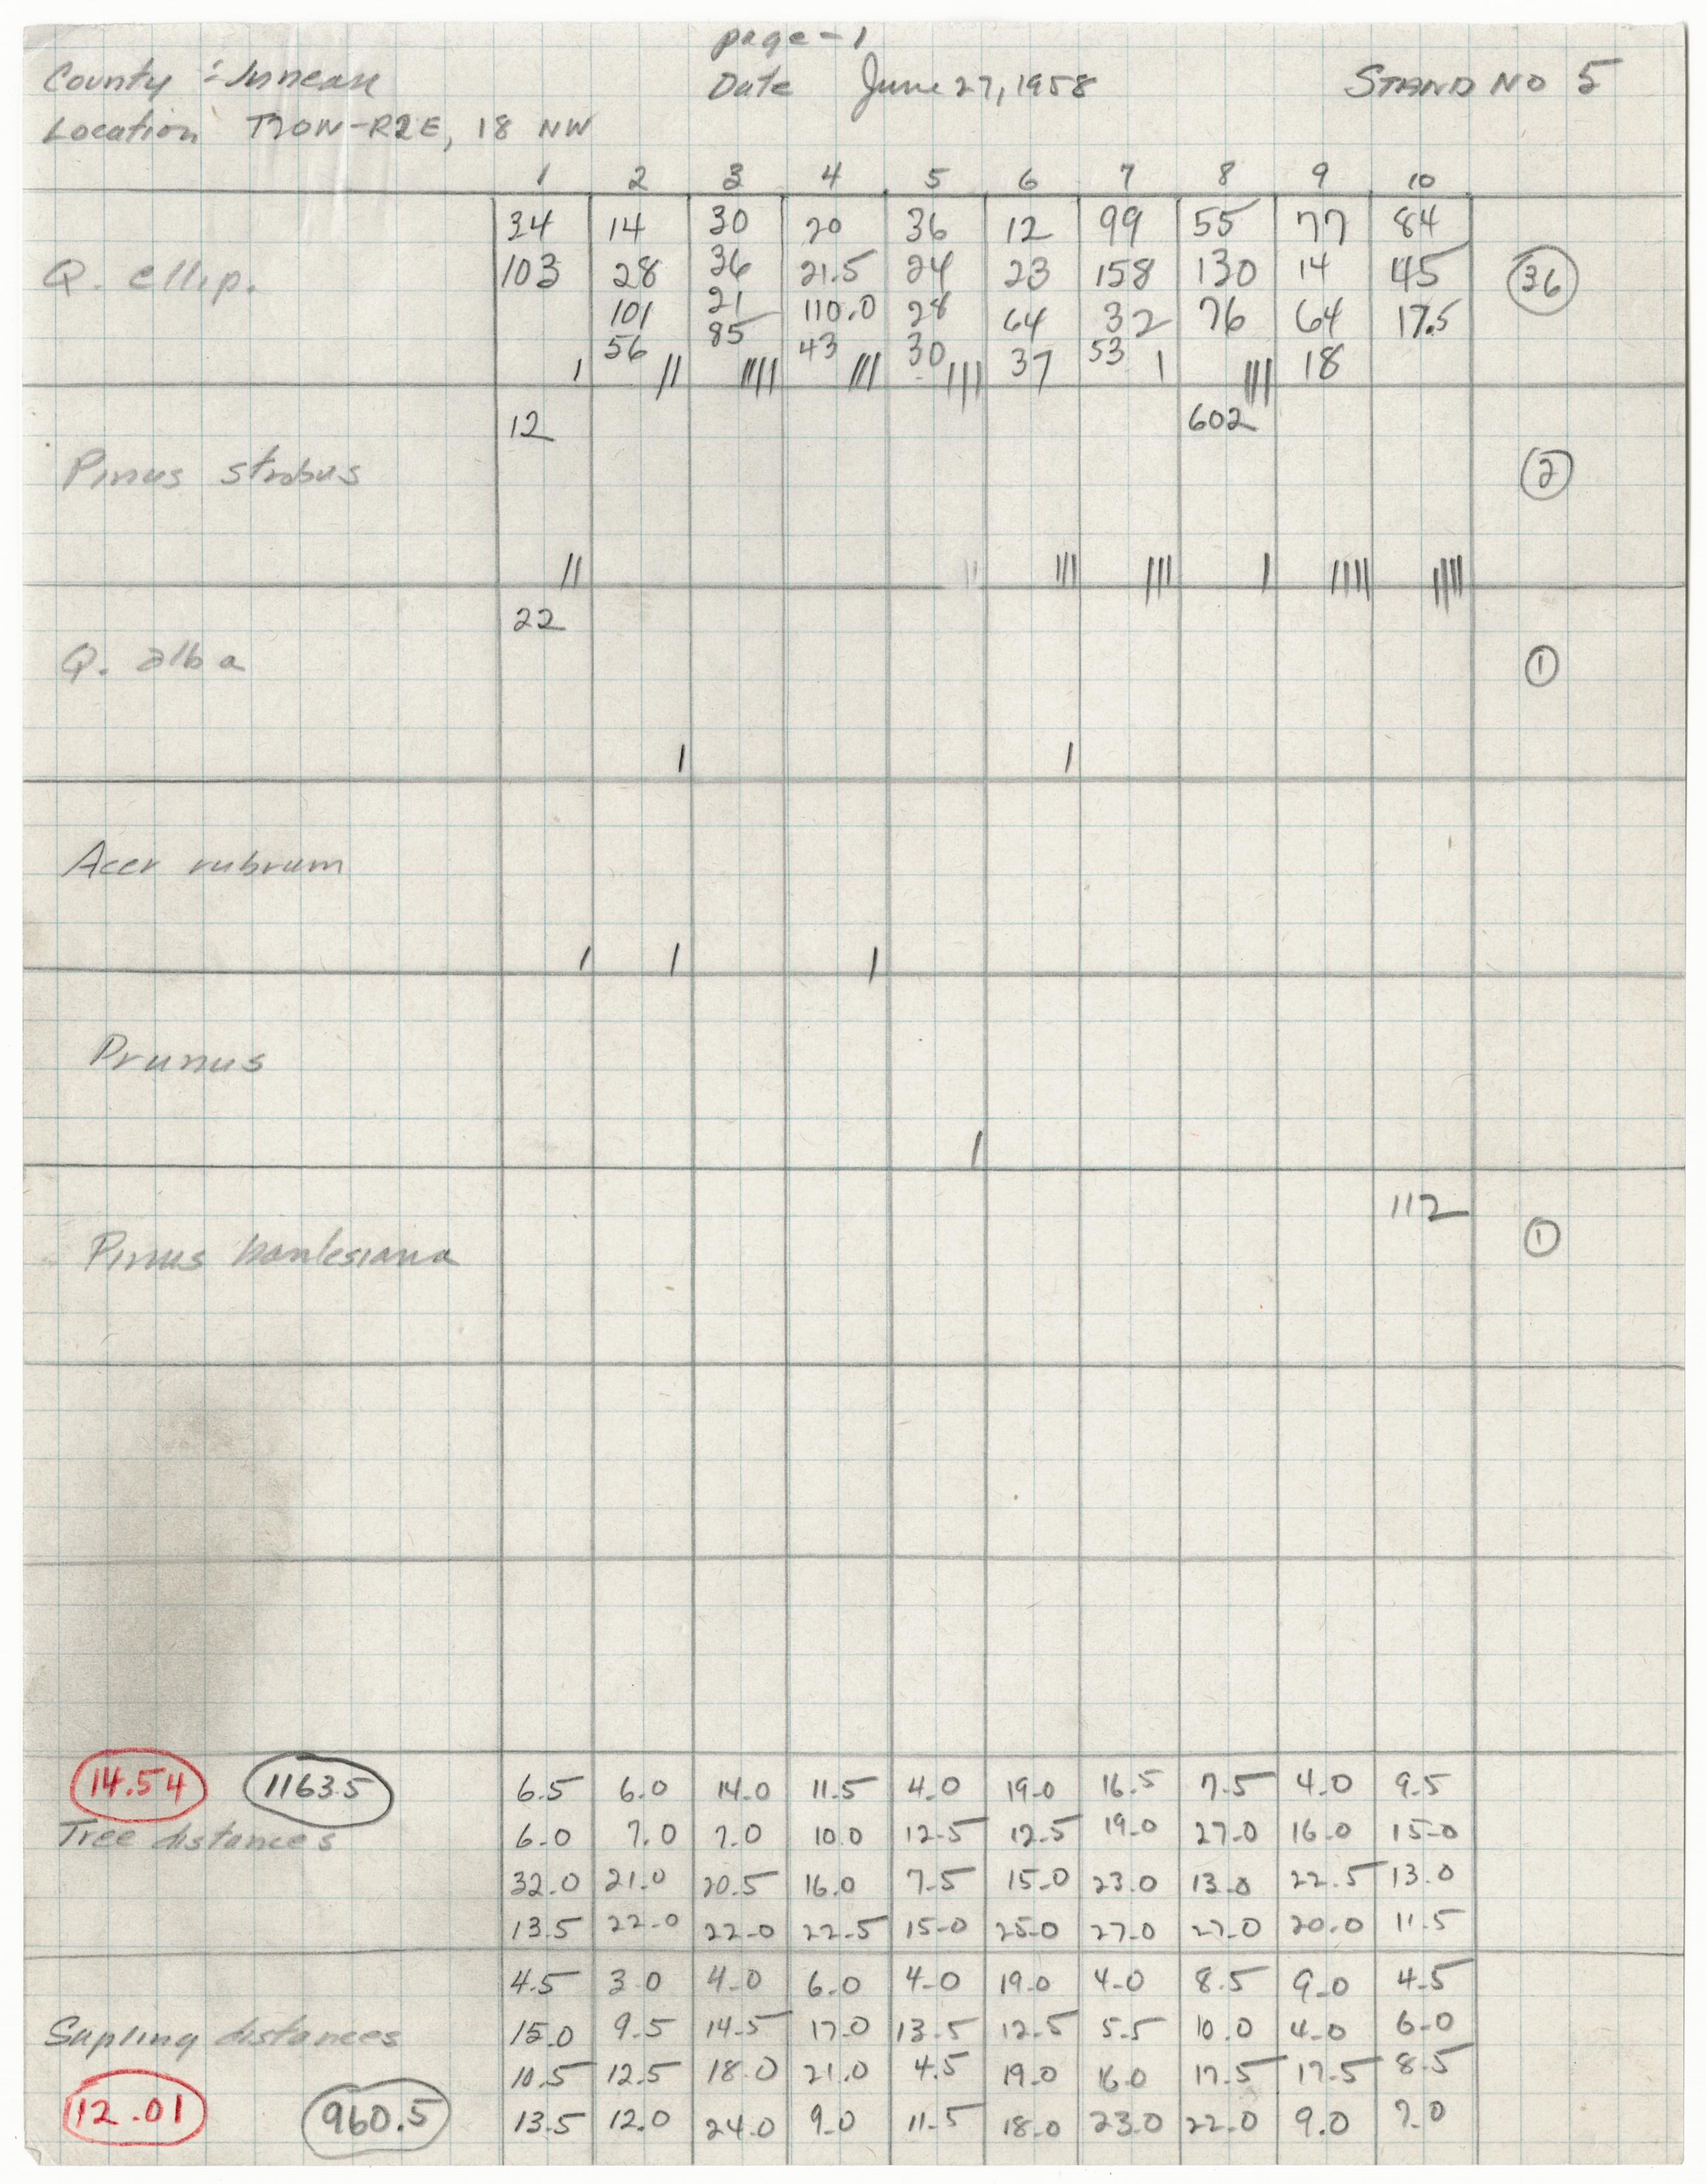 page - 1
County :- Juneau
Date June 27, 1958
STAND NO 5
Location T20N-R2E, 18 NW
1 2 3 4 5 6 7 8 9 10
34 14 30 20 36 12 99 55 77 84
Q. ellip. 103 28 36 21.5 24 23 158 130 14 45 36
101 21 110.0 28 64 32 76 64 17.5
56 85 43 30 37 53 18
| || |||| ||| ||| | |||
12 602
Pinus strobus 2
|| || ||| ||| | |||| ||||
22
Q. alba 1
| |
Acer rubrum
| | |
Prunus
|
112
Pinus banksiana 1
14.54 1163.5 6.5 6.0 14.0 11.5 4.0 19.0 16.5 7.5 4.0 9.5
Tree distances 6.0 7.0 7.0 10.0 12.5 12.5 19.0 27.0 16.0 15.0
32.0 21.0 20.5 16.0 7.5 15.0 23.0 13.0 22.5 13.0
13.5 22.0 22.0 22.5 15.0 25.0 27.0 27.0 20.0 11.5
4.5 3.0 4.0 6.0 4.0 19.0 4.0 8.5 9.0 4.5
Sapling distances 15.0 9.5 14.5 17.0 13.5 12.5 5.5 10.0 4.0 6.0
10.5 12.5 18.0 21.0 4.5 19.0 16.0 17.5 17.5 8.5
12.01 960.5 13.5 12.0 24.0 9.0 11.5 18.0 23.0 22.0 9.0 7.0